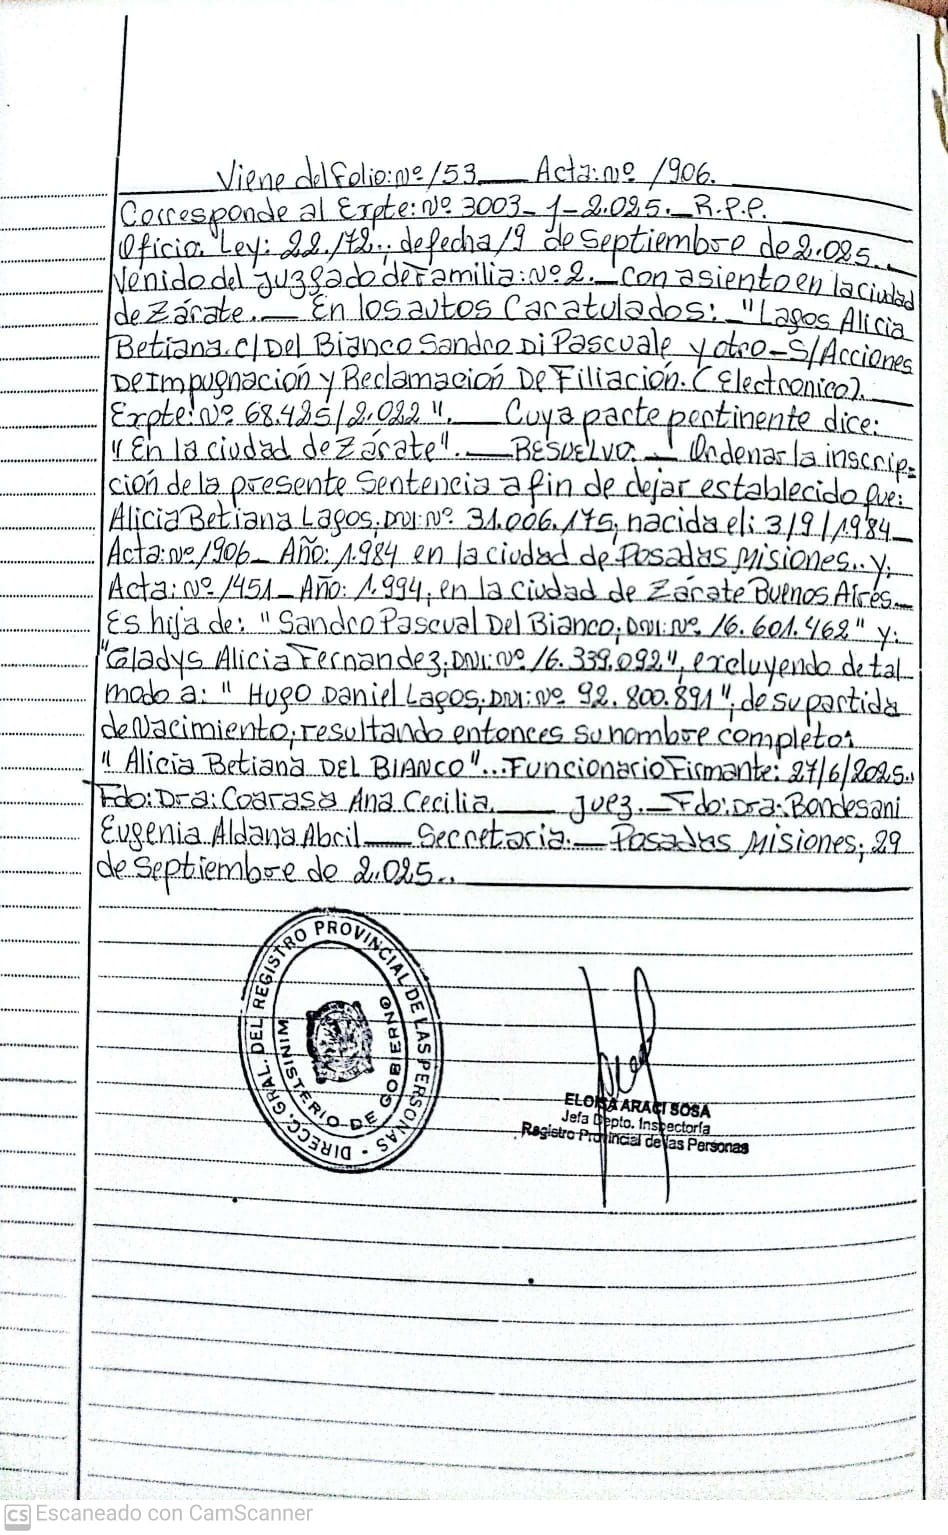 Viene del folio: Nº 153 Acta: Nº 1906.
Corresponde al Expte: Nº 3003-1-2.025. R.P.P.
Oficio. Ley: 22.172.. de fecha 19 de Septiembre de 2.025..
Venido del Juzgado de Familia: Nº 2. Con asiento en la ciudad
de Zárate. En los autos Caratulados: "Lagos Alicia
Betiana. C/ Del Bianco Sandro Di Pascuale y otro - S/ Acciones
De Impugnación y Reclamación De Filiación. (Electronico).
Expte: Nº 68.425/2.022". Cuya parte pertinente dice:
"En la ciudad de Zárate". RESUELVO. Ordenar la inscrip=
ción de la presente Sentencia a fin de dejar establecido que:
Alicia Betiana Lagos, DNI: Nº. 31.006.175, nacida el: 3/9/1.984
Acta: Nº 1906 - Año: 1.984 en la ciudad de Posadas Misiones.. y:
Acta: Nº 1451 - Año: 1.994, en la Ciudad de Zárate Buenos Aires.
Es hija de: "Sandro Pascual Del Bianco, DNI: Nº. 16.601.462" y:
"Gladys Alicia Fernandez, DNI: Nº 16.339.092", excluyendo de tal
modo a: "Hugo Daniel Lagos, DNI: Nº 92.800.891", de su partida
de Nacimiento, resultando entonces su nombre completo:
"Alicia Betiana DEL BIANCO"... Funcionario Firmante: 27/6/2025..
Fdo: Dra: Coarasa Ana Cecilia. Juez. Fdo: Dra: Bondesani
Eugenia Aldana Abril Secretaria. Posadas Misiones, 29
de Septiembre de 2.025..
DIRECC. GRAL. DEL REGISTRO PROVINCIAL DE LAS PERSONAS -
MINISTERIO DE GOBIERNO
ELOISA ARACI SOSA
Jefa Depto. Inspectoría
Registro Provincial de las Personas
CS Escaneado con CamScanner